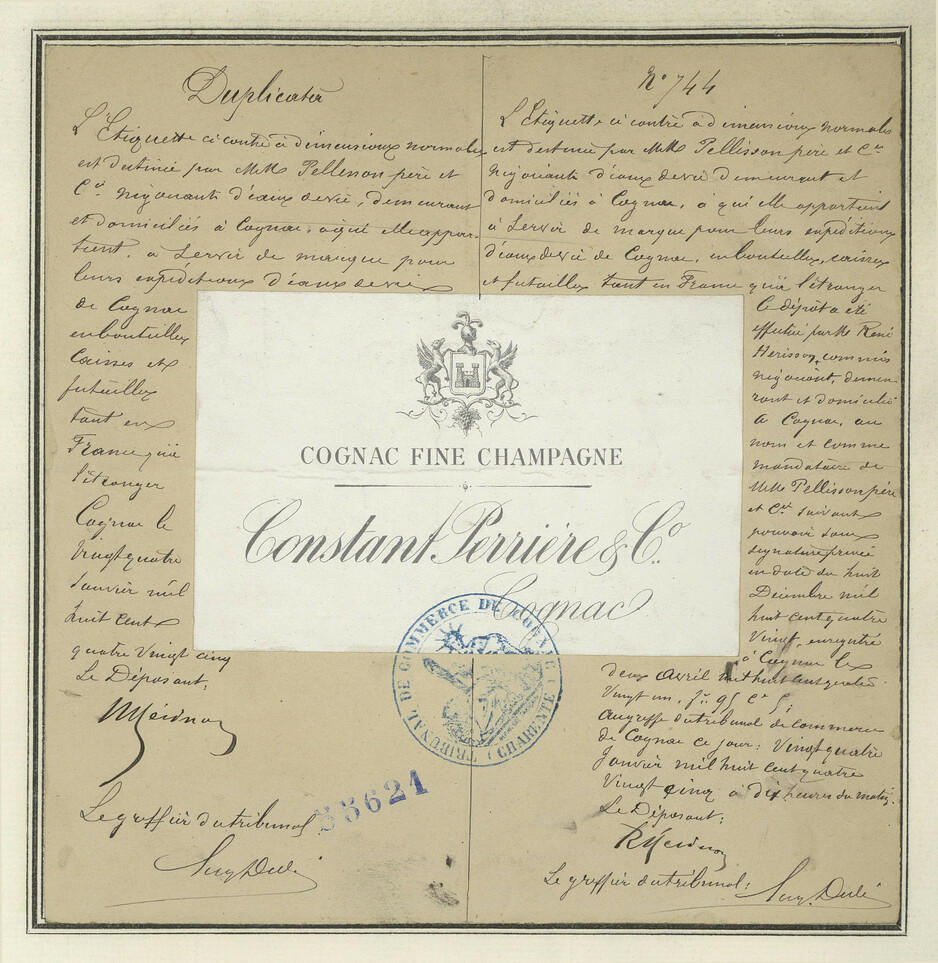 Duplicata
L'Etiquette ci contre à dimensions normales
est destinée par MM Pellisson père et
Cie négociants d'eaux de vie, demeurant
et domiciliés à Cognac, à qui elle appar-
tient, à servir de marque pour
leurs expéditions d'eaux de vie
de Cognac
en bouteilles
caisses et
futailles
tant en
France qu'à
l'étranger
Cognac le
Vingt quatre
Janvier mil
huit cent
quatre Vingt cinq
Le Déposant:
Le greffier du tribunal
33621
No 744
L'Etiquette ci contre à dimensions normales
est destinée par MM Pellisson père et Cie
négociants d'eaux de vie demeurant et
domiciliés à Cognac, à qui elle appartient
à servir de marque pour leurs expéditions
d'eaux de vie de Cognac, en bouteilles, caisses
et futailles tant en France qu'à l'étranger
le dépôt a été
effectué par M René
Herisson, commis
négociant, demeu-
rant et domicilié
à Cognac, au
nom et comme
mandataire de
MM Pellisson père
et Cie suivant
pouvoir sous
signature privée
en date du huit
Décembre mil
huit cent quatre
Vingt, enregistré
à Cognac le
deux Avril mil huit cent quatre
Vingt un, fo 95 Co
Au greffe du tribunal de commerce
de Cognac ce jour: Vingt quatre
Janvier mil huit cent quatre
Vingt cinq à dix heures du matin.
Le Déposant:
Le greffier du tribunal:
COGNAC FINE CHAMPAGNE
Constant Perrière & Co.
Cognac
TRIBUNAL DE COMMERCE DE COGNAC (CHARENTE)